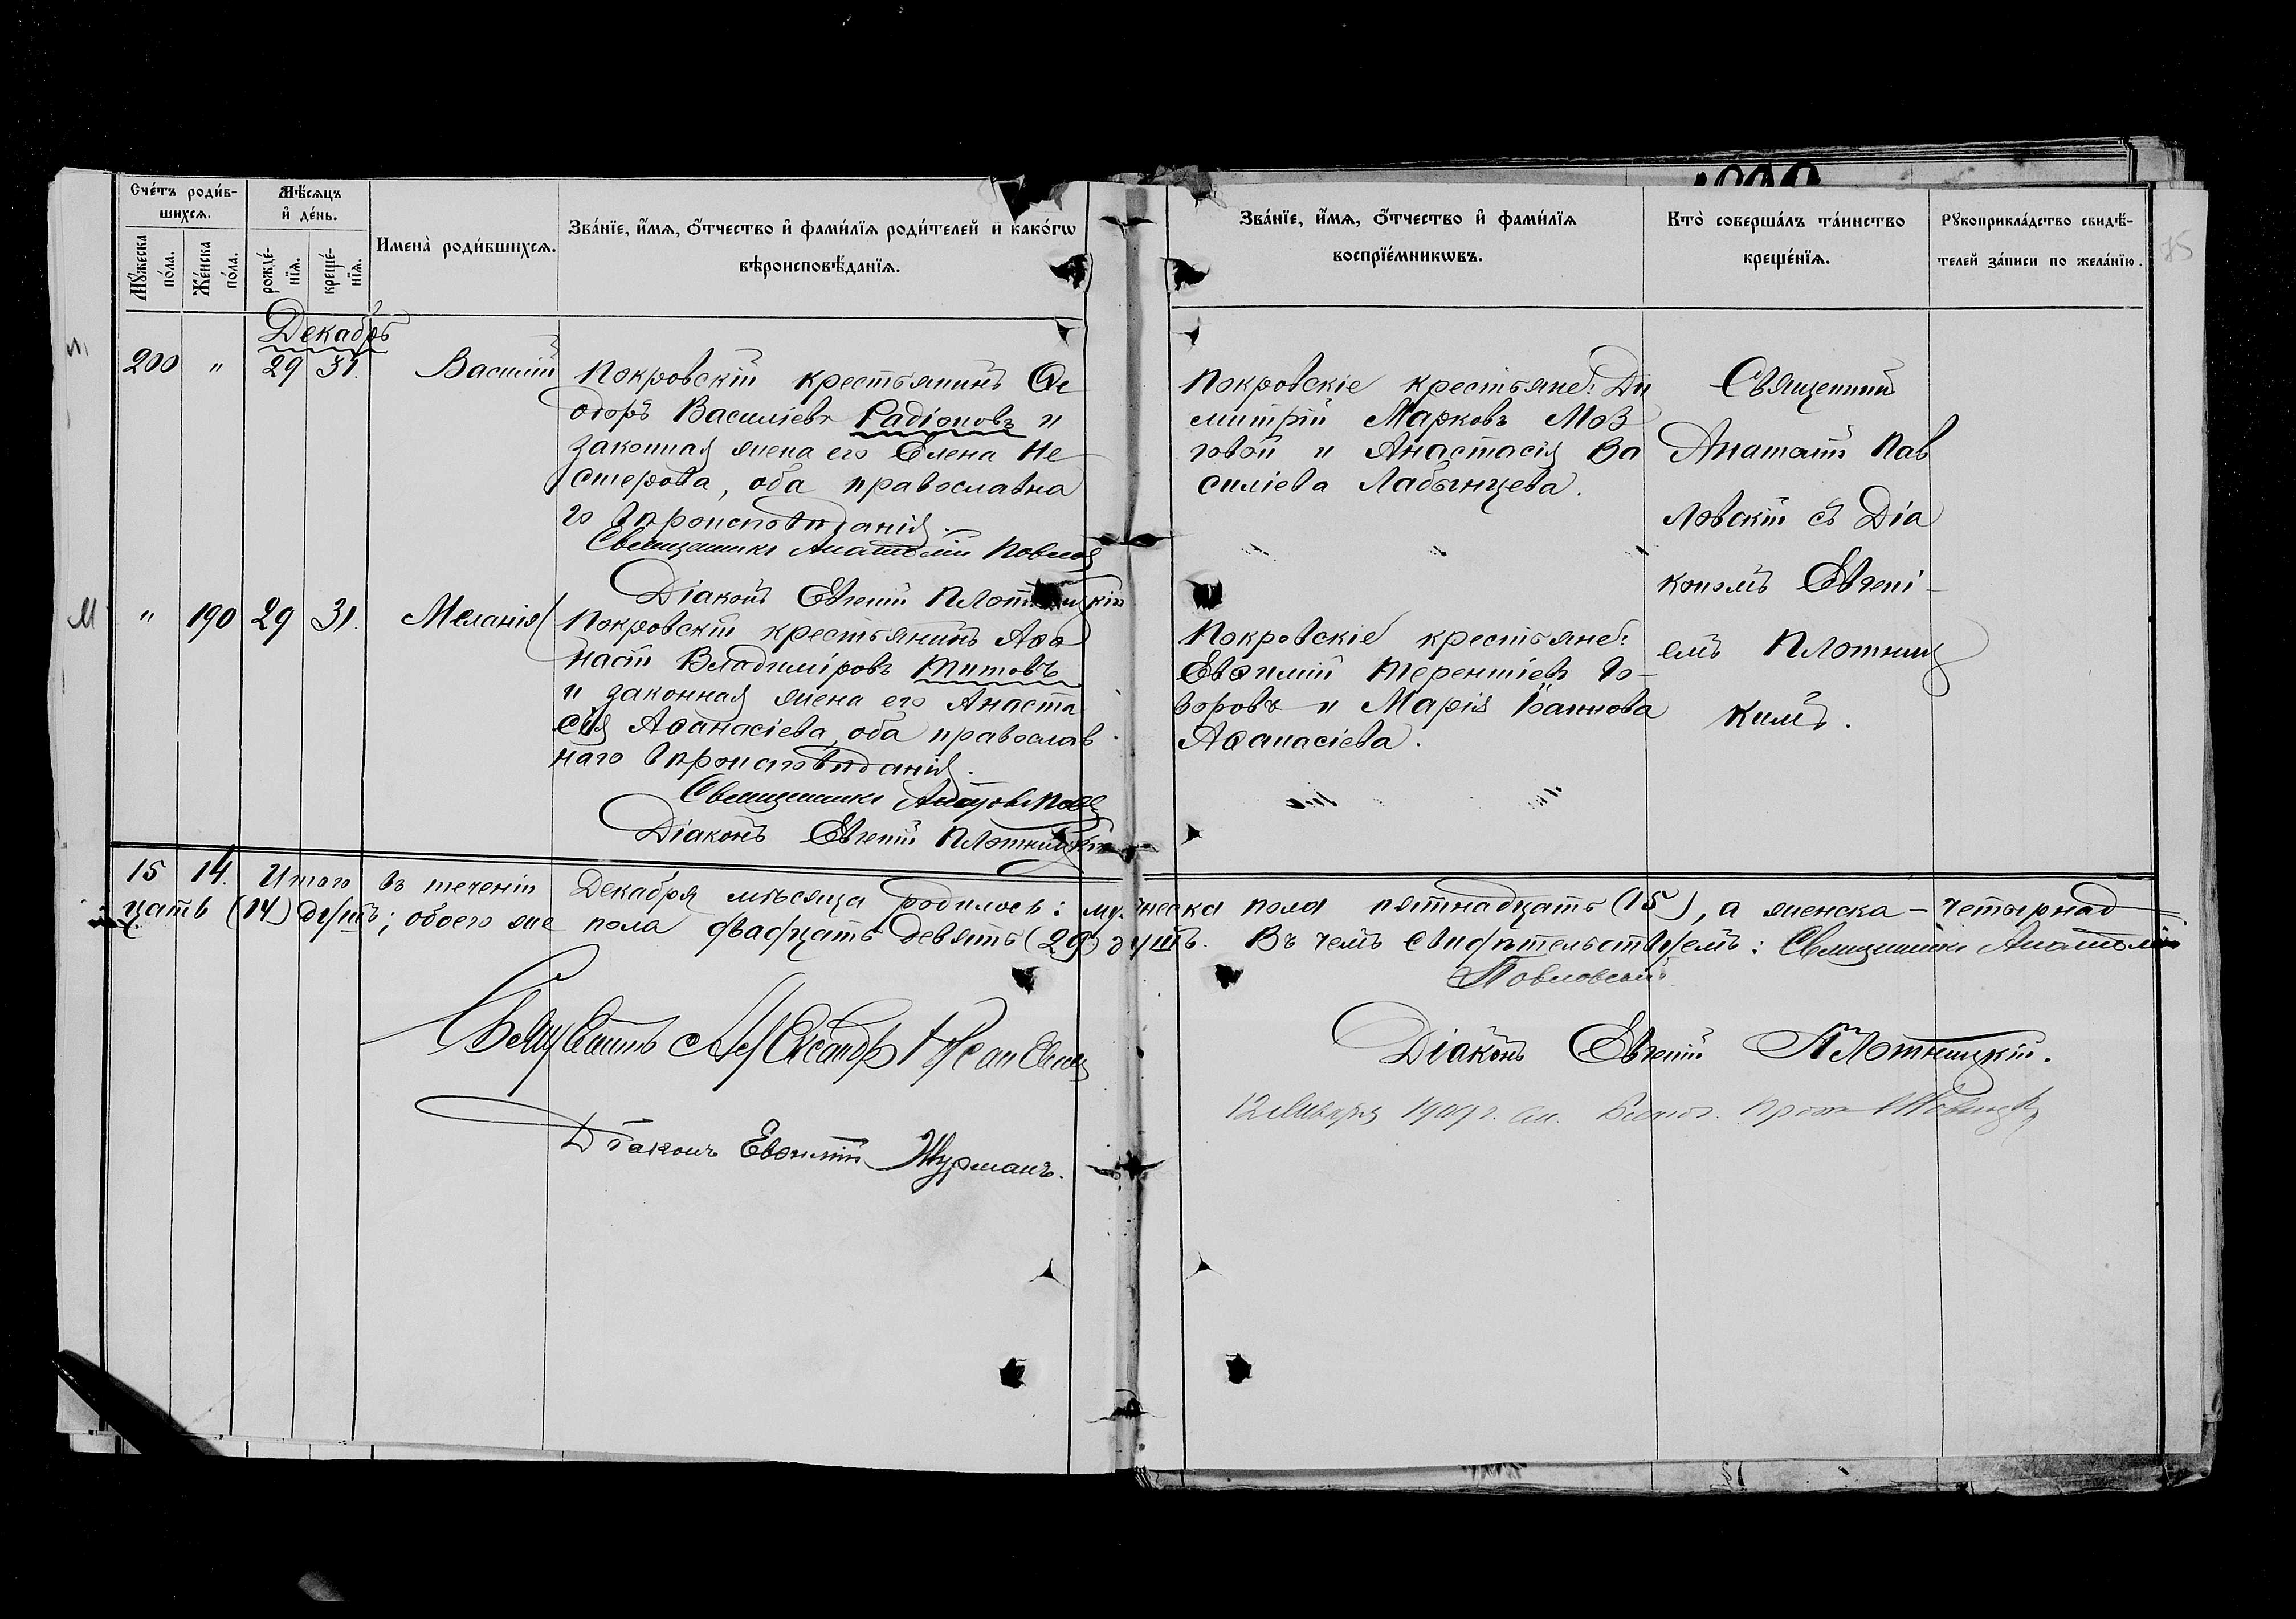 Счéтъ роди́в-
шихсѧ.
Мѣ́сѧцъ
и҆ дéнь.
Именà роди́вшихсѧ.
Звáнїе, и҆́мѧ, ѻ҆́тчество и҆ фами́лїѧ роди́телей и҆ какóгѡ
вѣроисповѣ́данїѧ.
Мꙋ́жеска
по́ла.
Же́нска
по́ла.
рождé-
нїѧ.
крещé-
нїѧ.
Звáнїе, и҆́мѧ, ѻ҆́тчество и҆ фами́лїѧ
воспрїéмникѡвъ.
Ктò совершáлъ тáинство
крещéнїѧ.
Рꙋкоприклáдство свидѣ́-
телей зáписи по желáнїю.
75
Декабрь
200 " 29 31. Василій
Покровскій крестьянинъ Ѳе
одоръ Василіевъ Радіоновъ и
законная жена его Елена Не
стерова, оба православна
го вѣроисповѣданія.
Священникъ Анатолій Павлов
Діаконъ Евгеній Плотницкій
Покровскіе крестьяне: Ди
митрій Марковъ Моз
говой и Анастасія Ва
силіева Лабынцева.
Священник
Анатолій Пав
ловскій съ Діа
кономъ Евгені-
емъ Плотниц
кимъ.
М " 190 29 31. Меланія
Покровскій крестьянинъ Аѳа
насій Владиміровъ Титовъ
и законная жена его Анаста
сія Аѳанасіева, оба православ
наго вѣроисповѣданія.
Священникъ
Діаконъ Евгеній Плотницкій
Покровскіе крестьяне:
Евѳимій Терентіевъ Го-
воровъ и Марія Іоаннова
Аѳанасіева.
15 14. Итого въ теченіи Декабря мѣсяца родилось: мужеска пола пятнадцать (15), а женска - четырнад
цать (14) душъ; обоего же пола двадцать девять (29) душъ. Въ чемъ свидѣтельствуемъ: Священникъ Анатолій
Павловскій
Священникъ Александръ
Діаконъ Евгеній Плотницкій.
Діаконъ Евѳимій Журманъ.
12 Января 1909 г.